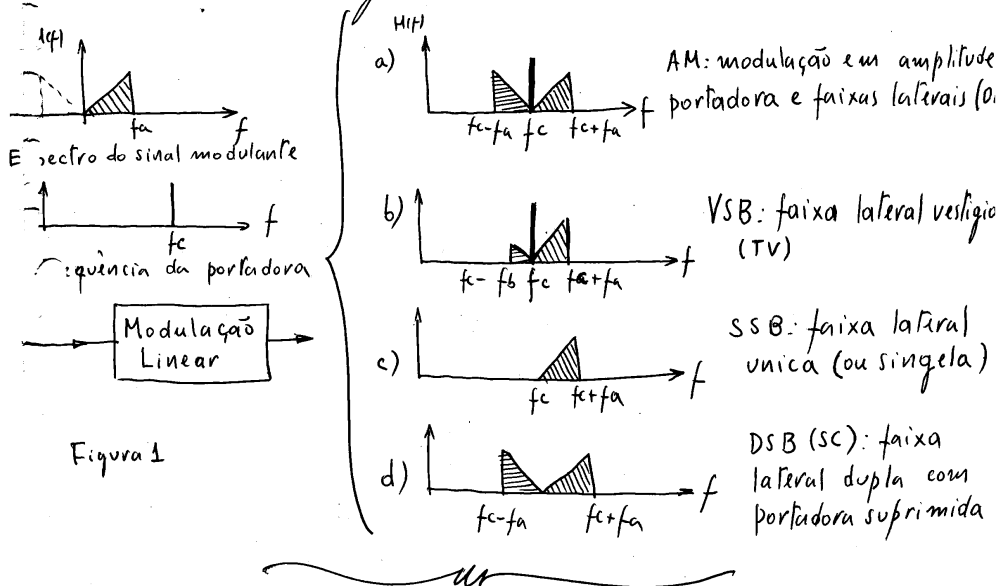 fa
f
do sinal modulante
fc
f
da portadora
Modulação
Linear
Figura 1
a)
fc-fa fc fc+fa
f
AM: modulação em amplitude
portadora e faixas laterais
b)
fc- fb fc fc+fa
f
VSB: faixa lateral
(TV)
c)
fc fc+fa
f
SSB: faixa lateral
unica (ou singela)
d)
fc-fa fc+fa
f
DSB (SC): faixa
lateral dupla com
portadora suprimida